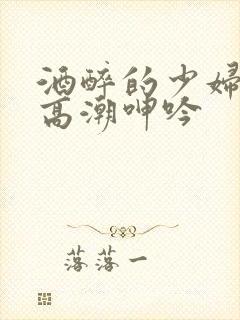 酒醉的少婦
高潮呻吟
落落一